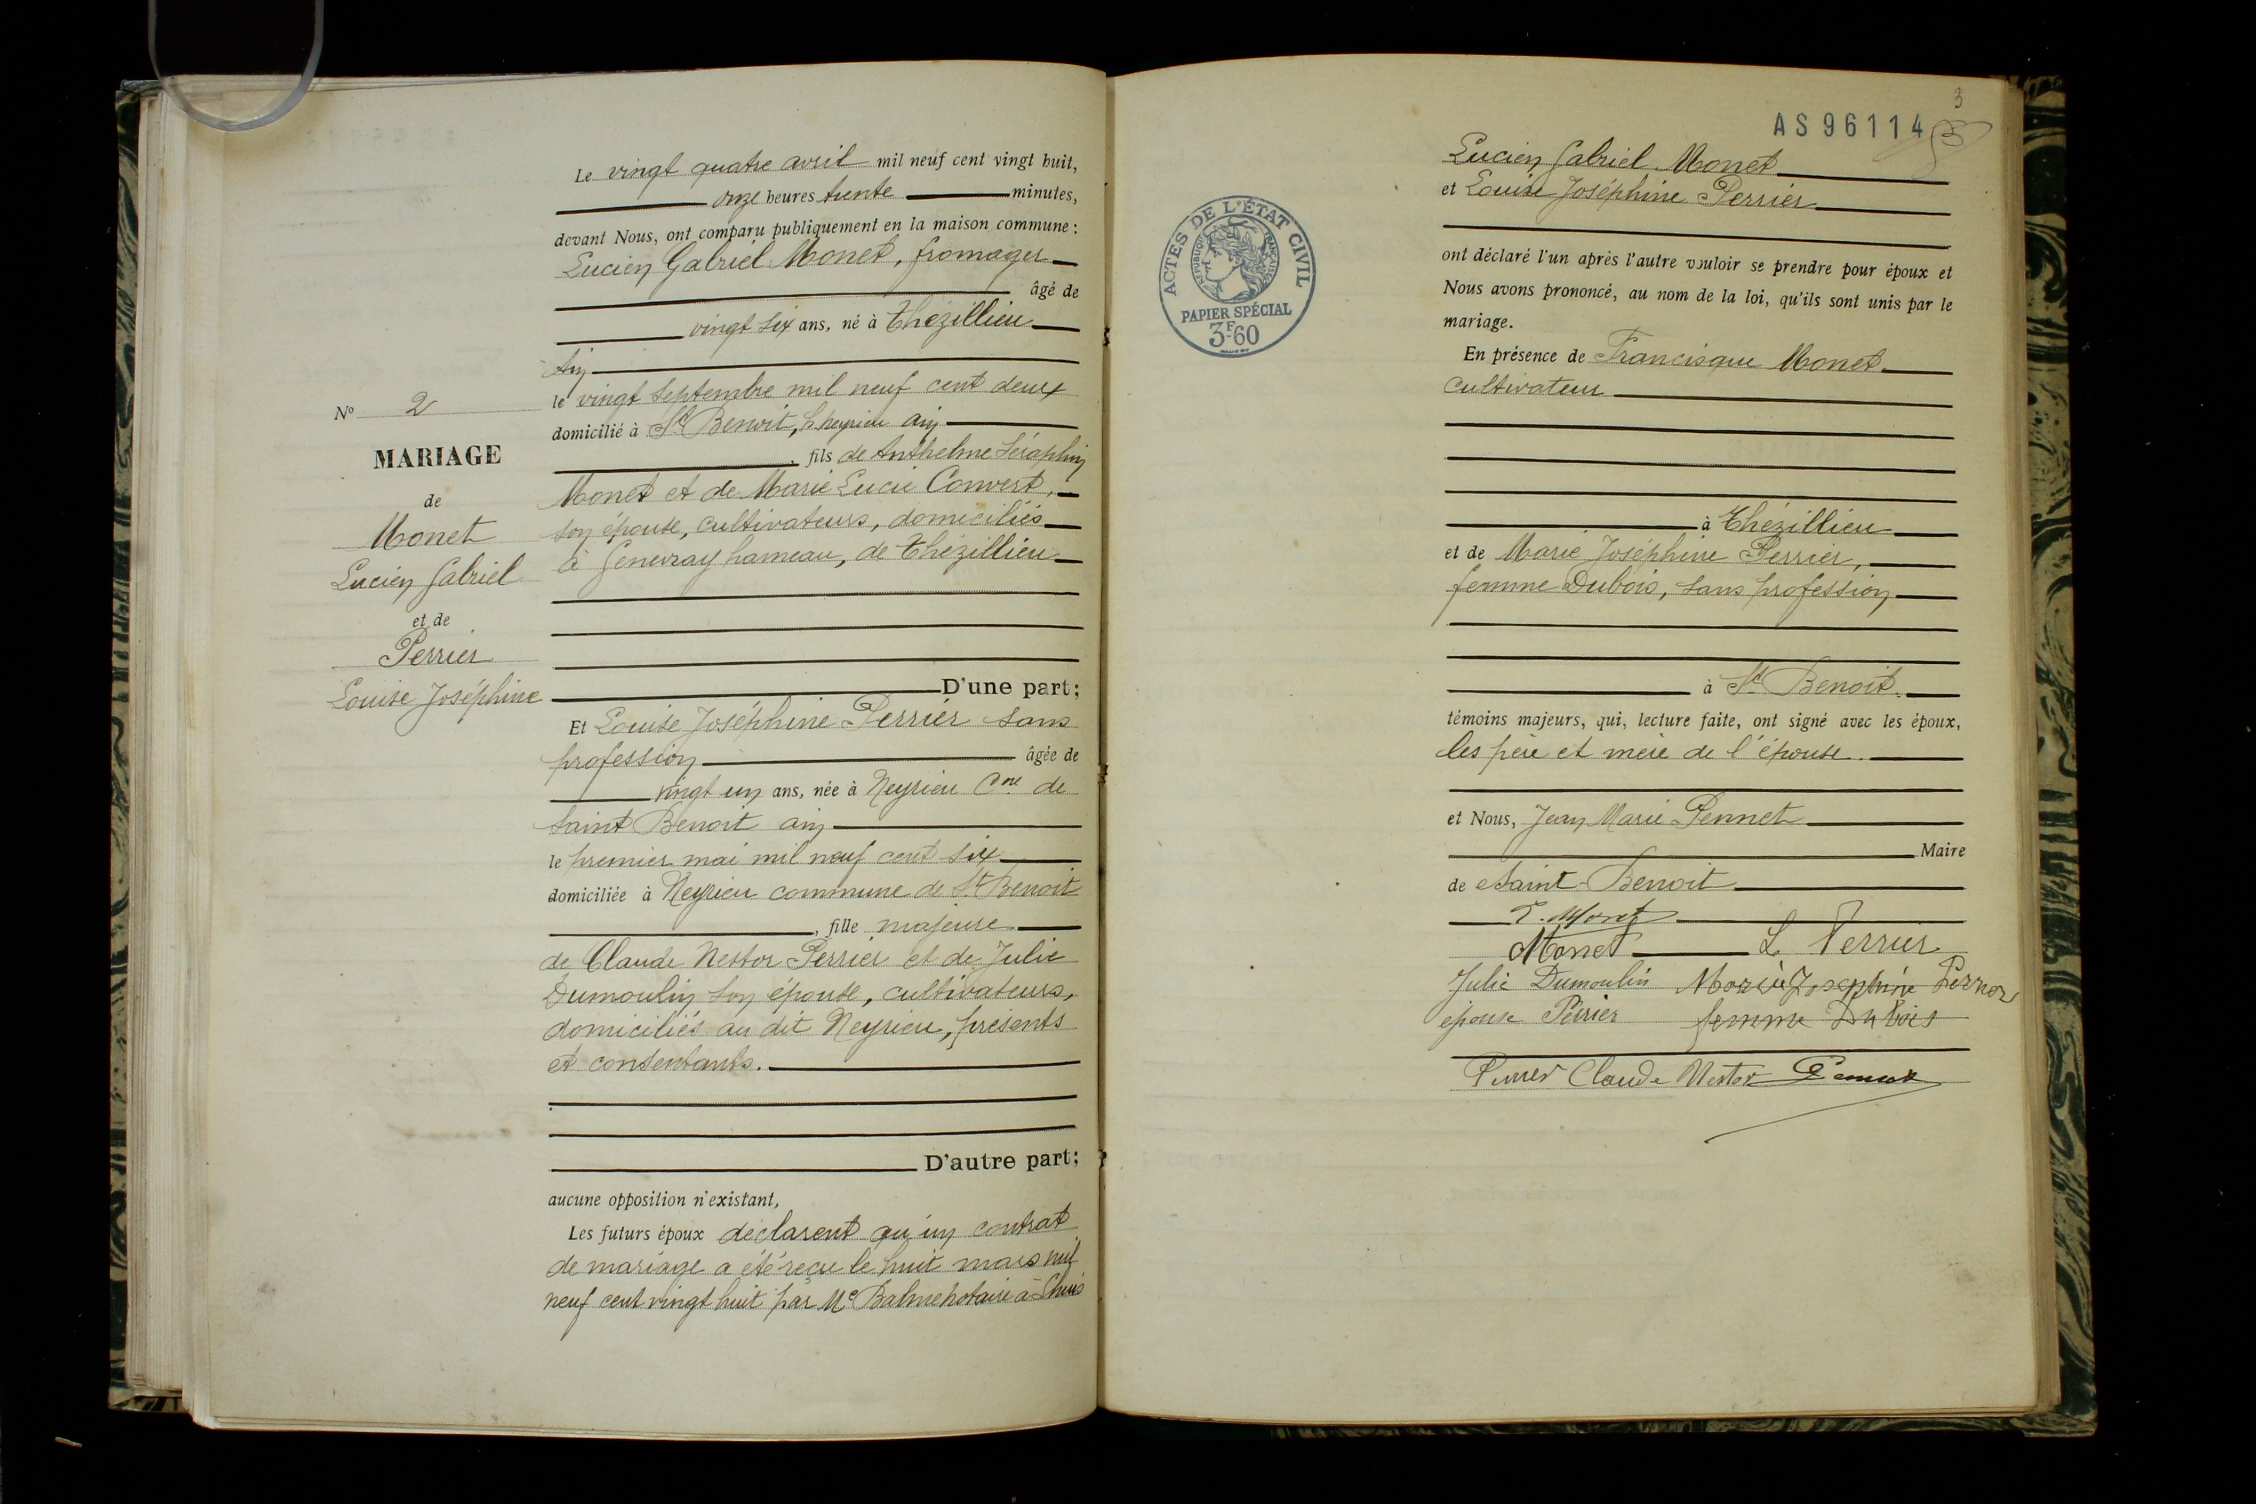 Nº 2
MARIAGE
de
Monet
Lucien Gabriel
et de
Perrier
Louise Joséphine
Le vingt quatre avril mil neuf cent vingt huit,
onze heures trente minutes,
devant Nous, ont comparu publiquement en la maison commune :
Lucien Gabriel Monet, fromager
âgé de
vingt six ans, né à Thézillieu
Ain
le vingt septembre mil neuf cent deux
domicilié à St Benoit, Ain
, fils de Anthelme Séraphin
Monet et de Marie Lucie Convert,
son épouse, cultivateurs, domiciliés
à Genevray hameau, de Thézillieu
D'une part ;
Et Louise Joséphine Perrier sans
profession âgée de
vingt un ans, née à Neyrieu Cne de
Saint Benoit ain
le premier mai mil neuf cent six
domiciliée à Neyrieu commune de St Benoit
, fille majeure
de Claude Nestor Perrier et de Julie
Dumoulin son épouse, cultivateurs,
domiciliés au dit Neyrieu, présents
et consentants.
D'autre part ;
aucune opposition n'existant,
Les futurs époux déclarent qu'un contrat
de mariage a été reçu le huit mars mil
neuf cent vingt huit par Me Balme notaire à Lhuis
3
AS 96114
ACTES DE L'ÉTAT CIVIL
RÉPUBLIQUE FRANÇAISE
PAPIER SPÉCIAL
3F60
Lucien Gabriel Monet
et Louise Joséphine Perrier
ont déclaré l'un après l'autre vouloir se prendre pour époux et
Nous avons prononcé, au nom de la loi, qu'ils sont unis par le
mariage.
En présence de Francisque Monet
cultivateur
à Thézillieu
et de Marie Joséphine Perrier,
femme Dubois, sans profession
à St Benoit.
témoins majeurs, qui, lecture faite, ont signé avec les époux,
les père et mère de l'épouse.
et Nous, Jean Marie Pennet
Maire
de Saint-Benoit
Monet
Monet L Perrier
Julie Dumoulin Marie Josephine Perrier
épouse Perrier femme Dubois
Perrier Claude Nestor Pennet